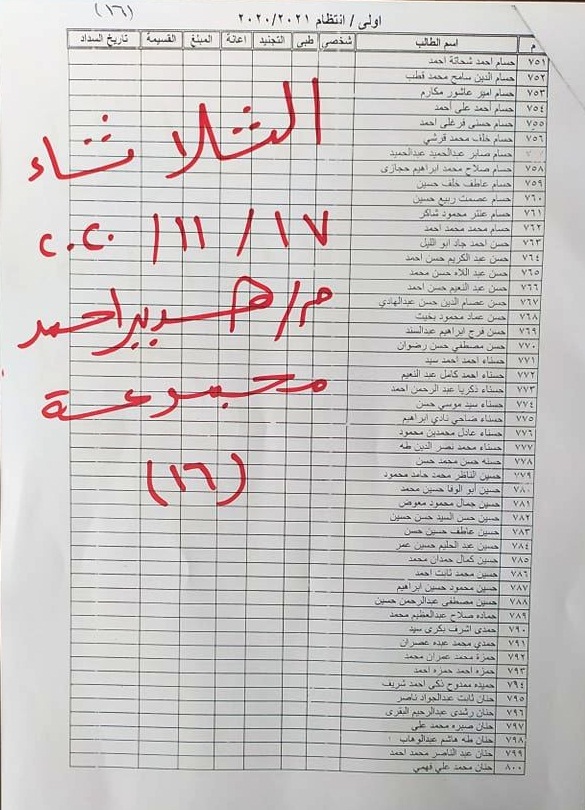 (١٦)
اولى / انتظام ٢٠٢٠/٢٠٢١
م اسم الطالب شخصي طبى التجنيد اعانة المبلغ القسيمة تاريخ السداد
٧٥١ حسام احمد شحاتة احمد
٧٥٢ حسام الدين سامح محمد قطب
٧٥٣ حسام امير عاشور مكارم
٧٥٤ حسام احمد على أحمد
٧٥٥ حسام حسنى فرغلى احمد
٧٥٦ حسام خلف محمد قرشي
حسام صابر عبدالحميد عبدالحميد
٧٥٨ حسام صلاح محمد ابراهيم حجازى
٧٥٩ حسام عاطف خلف حسين
٧٦٠ حسام عصمت ربيع حسين
٧٦١ حسام عنتر محمود شاكر
٧٦٢ حسام محمد محمد احمد
٧٦٣ حسن احمد جاد ابو الليل
٧٦٤ حسن عبد الكريم حسن احمد
٧٦٥ حسن عبد اللاه حسن محمد
٧٦٦ حسن عبد النعيم حسن احمد
٧٦٧ حسن عصام الدين حسن عبدالهادي
٧٦٨ حسن عماد محمود بخيت
٧٦٩ حسن فرج ابراهيم عبدالسند
٧٧٠ حسن مصطفي حسن رضوان
٧٧١ حسناء احمد احمد سيد
٧٧٢ حسناء احمد كامل عبد النعيم
٧٧٣ حسناء ذكريا عبد الرحمن احمد
٧٧٤ حسناء سيد موسي حسن
٧٧٥ حسناء ضاحي نادي ابراهيم
٧٧٦ حسناء عادل محمدين محمود
٧٧٧ حسناء محمد نصر الدين طه
٧٧٨ حسنه حسن محمد حسن
٧٧٩ حسين الناظر محمد حامد محمود
٧٨٠ حسين أبو الوفا حسين محمد
٧٨١ حسين جمال محمود معوض
٧٨٢ حسين حسن السيد حسن حسين
٧٨٣ حسين عاطف حسين حسن
٧٨٤ حسين عبد الحليم حسين عمر
٧٨٥ حسين كمال حمدان محمد
٧٨٦ حسين محمد ثابت احمد
٧٨٧ حسين محمود حسين ابراهيم
٧٨٨ حسين مصطفى عبدالرحمن حسين
٧٨٩ حماده صلاح عبدالعظيم محمد
٧٩٠ حمدى اشرف بكرى سيد
٧٩١ حمدي محمد عبده عصران
٧٩٢ حمزة محمد عمران محمد
٧٩٣ حمزه احمد حمزه احمد
٧٩٤ حميده ممدوح ذكى احمد شريف
٧٩٥ حنان ثابت عبدالجواد ناصر
٧٩٦ حنان رشدى عبدالرحيم البقرى
٧٩٧ حنان صبره محمد على
٧٩٨ حنان طه هاشم عبدالوهاب
٧٩٩ حنان عبد الناصر محمد احمد
٨٠٠ حنان محمد علي فهمي
الثلاثاء
١٧ / ١١ / ٢٠٢٠
م/ هدير احمد
مجموعة
(١٦)